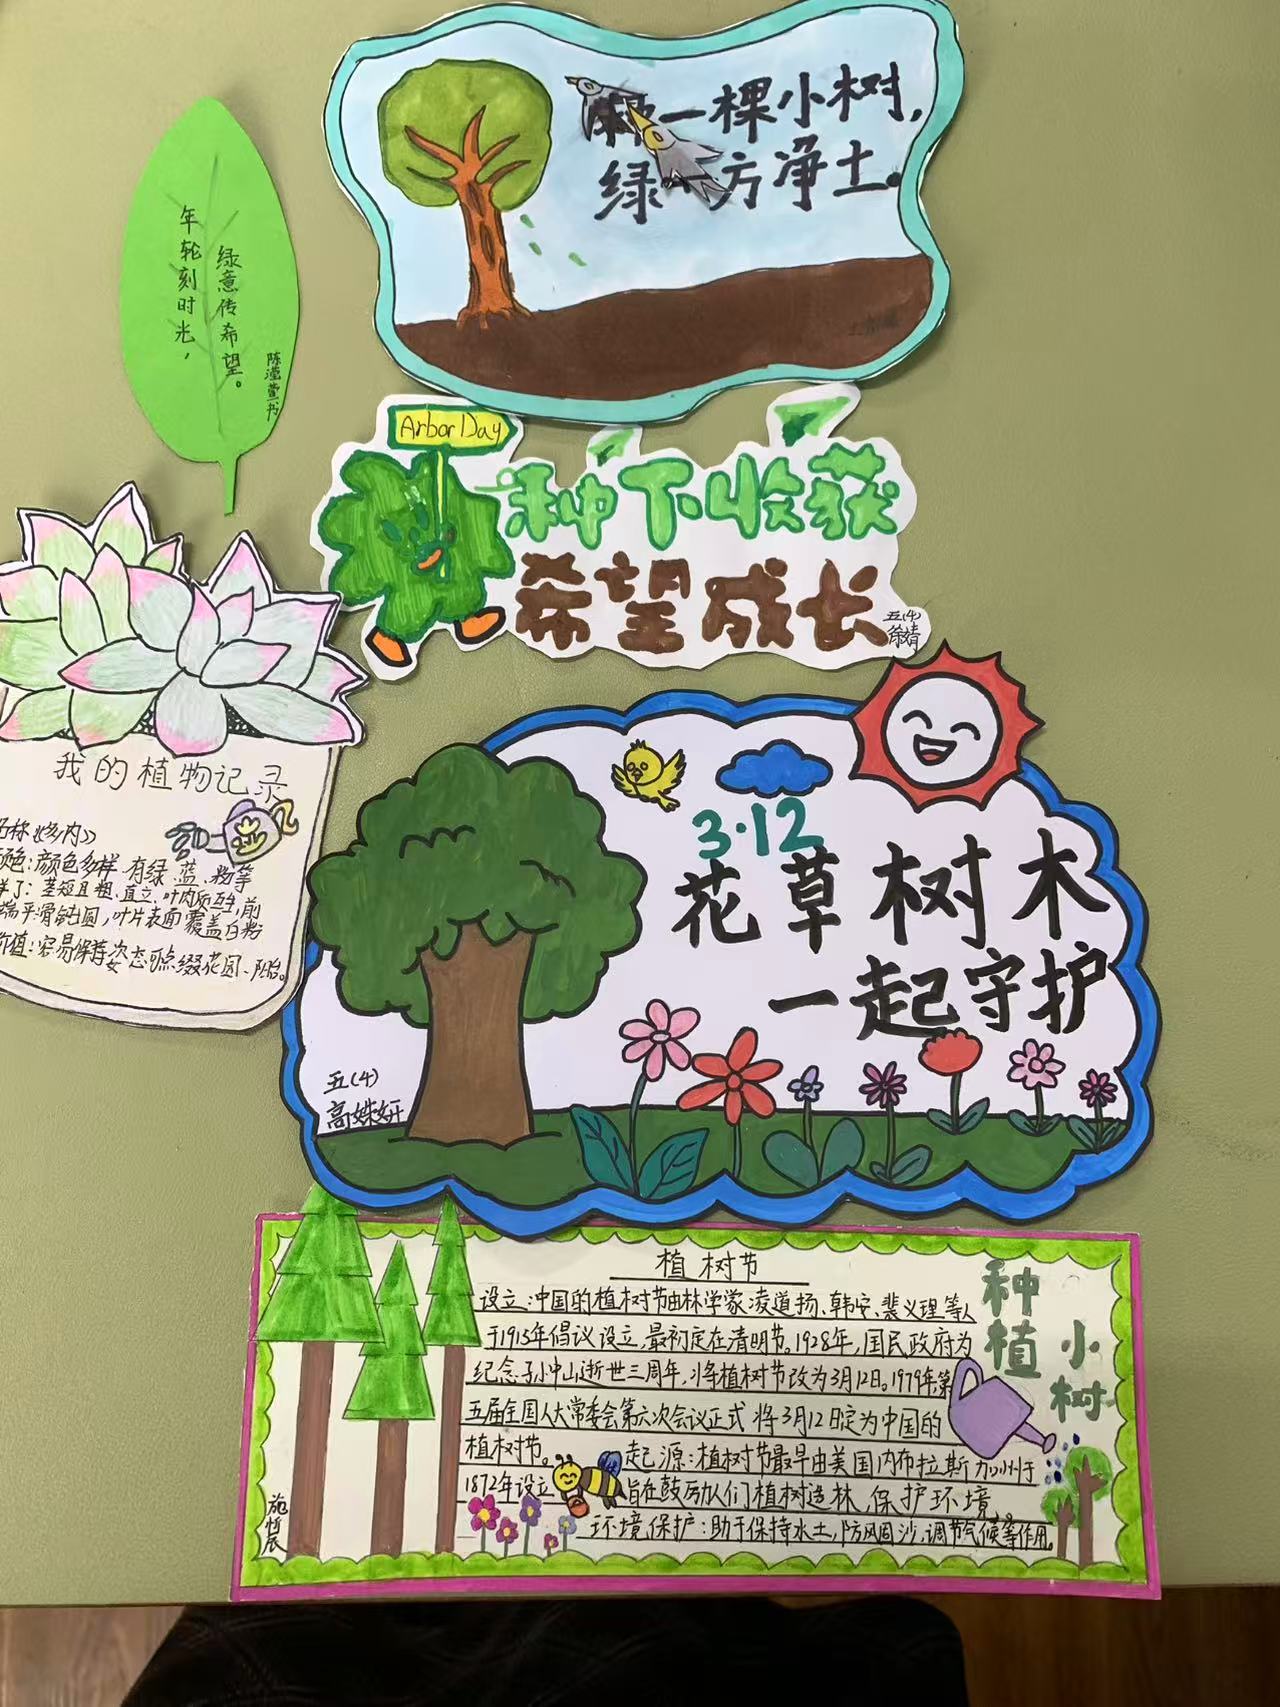 种一棵小树，
绿一方净土。
年轮刻时光，
绿意传希望。
陈滢萱书
Arbor Day
种下收获
希望成长
五(4)
徐婧
我的植物记录
名称《多肉》
颜色：颜色多样 有绿、蓝、粉等
样子：茎短且粗、直立、叶肉质互生，前
端平滑钝圆，叶片表面覆盖白粉
价值：容易保持姿态可点缀花园、阳台。
3·12
花草树木
一起守护
五(4)
高姝妍
植树节
设立：中国的植树节由林学家凌道扬、韩安、裴义理等人
于1915年倡议设立，最初定在清明节。1928年，国民政府为
纪念孙中山逝世三周年，将植树节改为3月12日。1979年第
五届全国人大常委会第六次会议正式将3月12日定为中国的
植树节。 起源：植树节最早由美国内布拉斯加州于
1872年设立 旨在鼓励人们植树造林，保护环境
环境保护：助于保持水土，防风固沙，调节气候等作用。
种植
小树